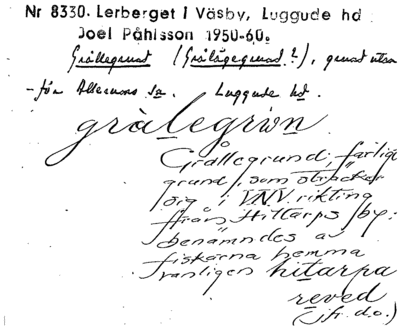 Nr 8330. Lerberget i Väsby, Luggude hd
Joel Påhlsson 1950-60.
Grållegrund (Grålågegrund?), grund utan-
-för Allerums sn. Luggude hd.
grålegrivn
Grållegrund, farligt
grund, som sträcker
sig i VNV rikting
ffrån Hittarps by:
benämndes av
fiskarna hemma
vanligen hitarpa
reved
(jfr. d.o.)